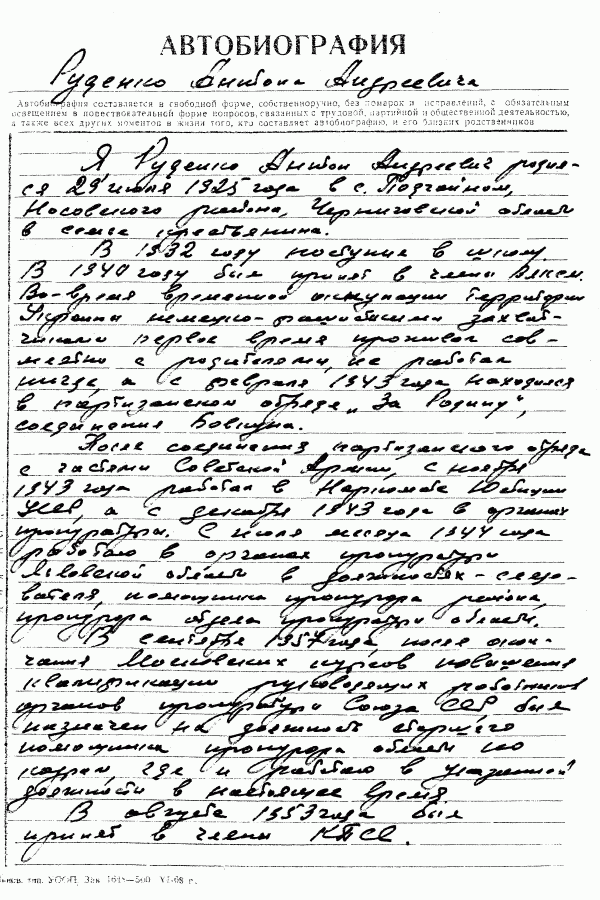 АВТОБИОГРАФИЯ
Руденко Антона Андреевича
Автобиография составляется в свободной форме, собственноручно, без помарок и исправлений, с обязательным
освещением в повествовательной форме вопросов, связанных с трудовой, партийной и общественной деятельностью,
а также всех других моментов в жизни того, кто составляет автобиографию, и его близких родственников
Я Руденко Антон Андреевич родил-
ся 29 июля 1925 года в с. Подгайном,
Носовского района, Черниговской области
в семье крестьянина.
В 1932 году поступил в школу.
В 1940 году был принят в члены ВЛКСМ.
Во-время временной оккупации территории
Украины немецко-фашистскими захват-
чиками первое время проживал сов-
местно с родителями, не работал
нигде, а с февраля 1943 года находился
в партизанском отряде „За Родину",
соединения Бовкуна.
После соединения партизанского отряда
с частями Советской Армии, с ноября
1943 года работал в Наркомате Юстиции
УССР, а с декабря 1943 года в органах
прокуратуры. С июля месяца 1944 года
работаю в органах прокуратуры
Львовской области в должностях - следо-
вателя, помощника прокурора района,
прокурора отдела прокуратуры области.
В сентябре 1957 года, после окон-
чания Московских курсов повышения
квалификации руководящих работников
органов прокуратуры Союза ССР, был
назначен на должность старшего
помощника прокурора области по
кадрам, где и работаю в указанной
должности в настоящее время
В августе 1953 года был
принят в члены КПСС.
тип. УООП, Зак. 1648—500